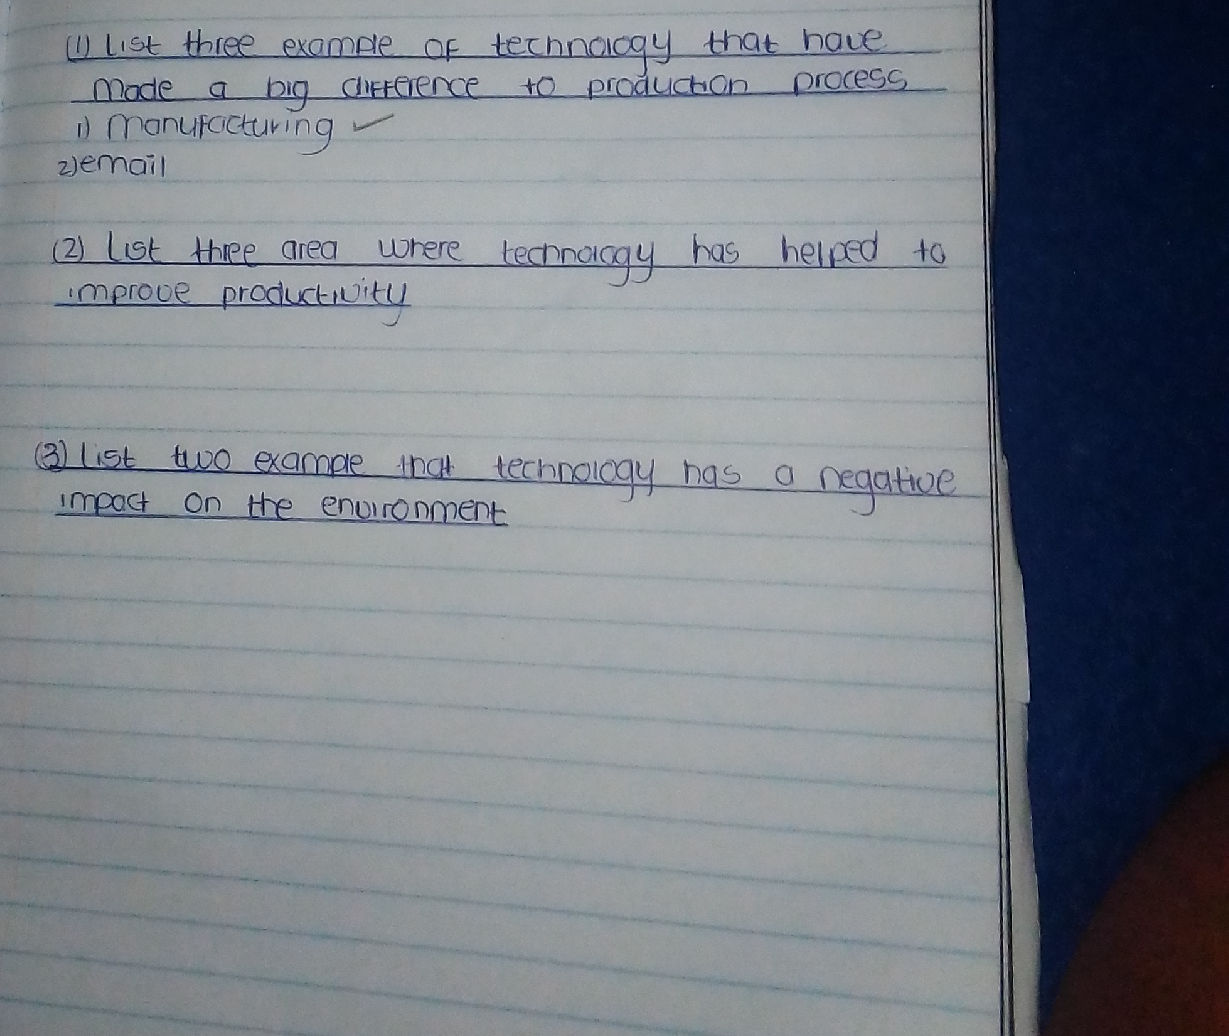 (1) List three example of technology that have
made a big difference to production process
1) Manufacturing ✓
2) email
(2) List three area where technology has helped to
improve productivity
(3) List two example that technology has a negative
impact on the environment